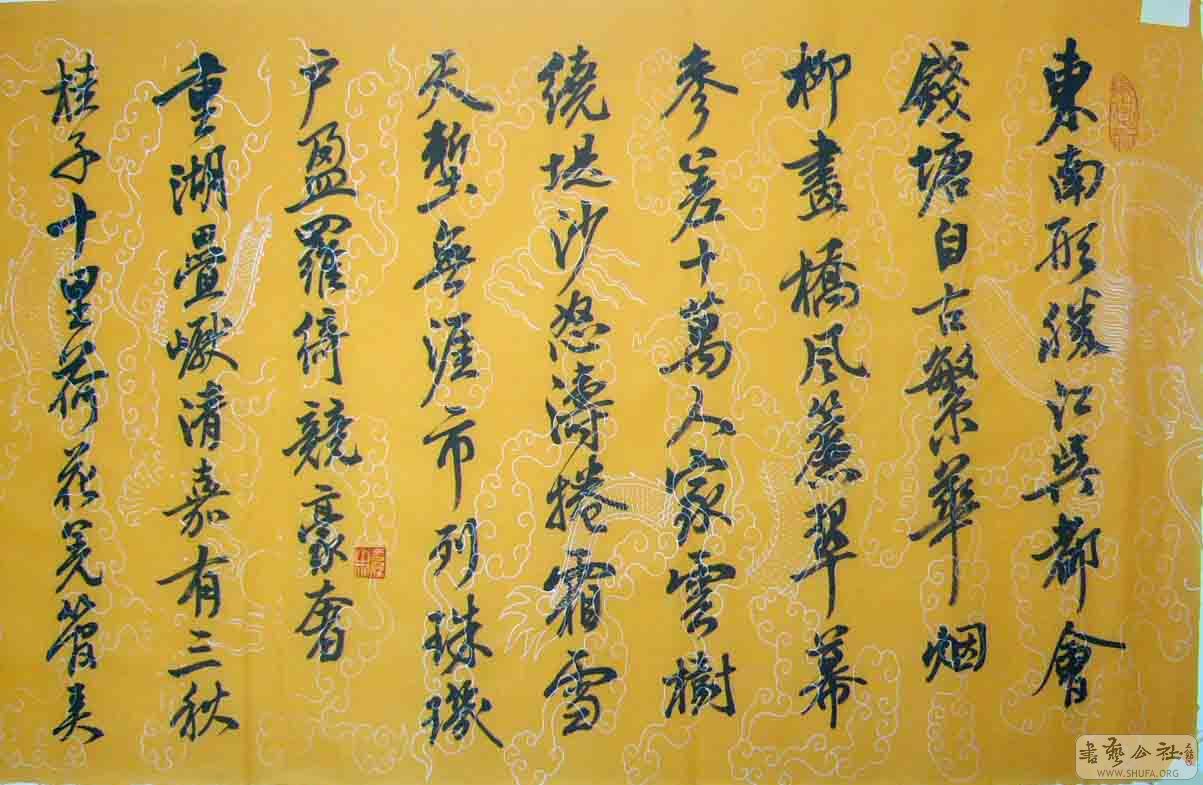 東南形勝江吳都會
錢塘自古繁華烟
柳畫橋風簾翠幕
參差十萬人家雲樹
繞堤沙怒濤捲霜雪
天塹無涯市列珠璣
户盈羅綺競豪奢
重湖疊巘清嘉有三秋
桂子十里荷花羌管弄
書藝公社
WWW.SHUFA.ORG